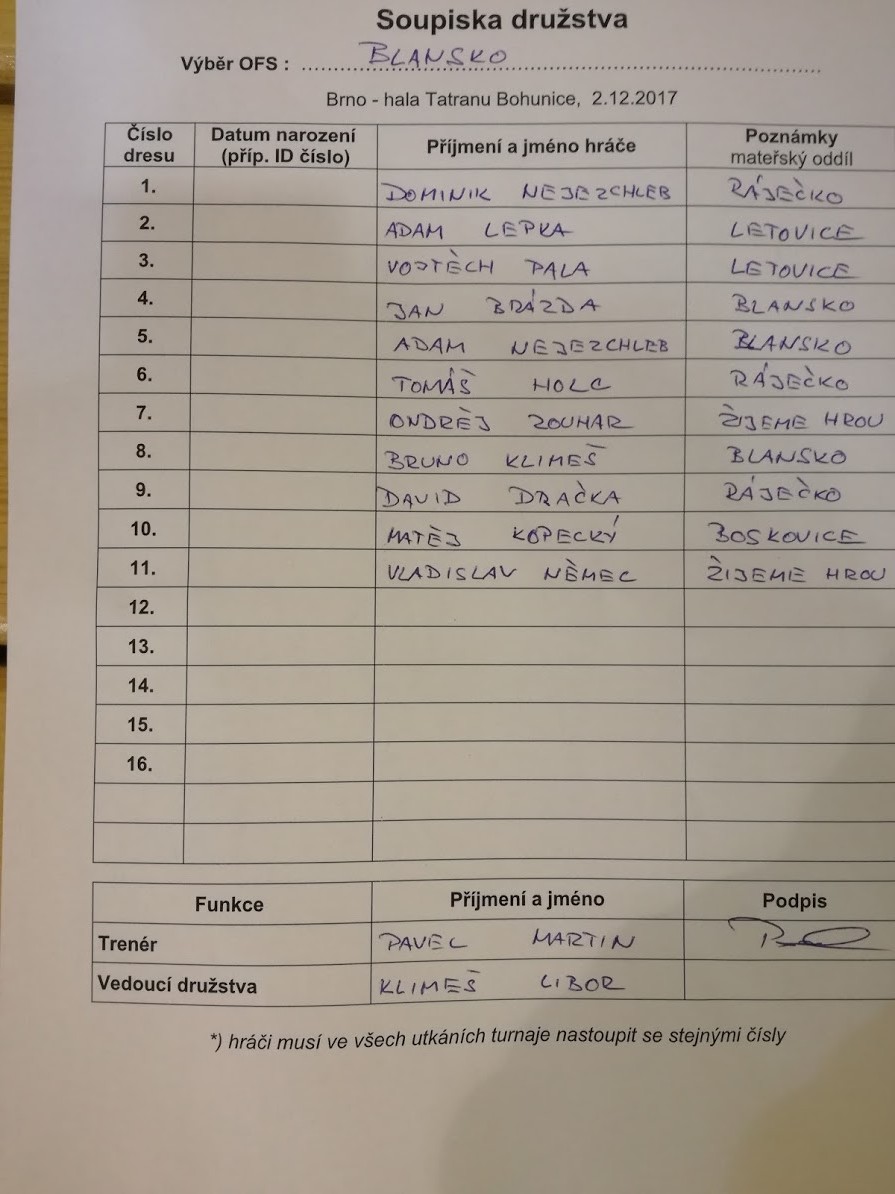 Soupiska družstva
Výběr OFS : BLANSKO
Brno - hala Tatranu Bohunice, 2.12.2017
Číslo dresu Datum narození (příp. ID číslo) Příjmení a jméno hráče Poznámky mateřský oddíl
1. DOMINIK NEJEZCHLEB RÁJEČKO
2. ADAM LEPKA LETOVICE
3. VOJTĚCH PALA LETOVICE
4. JAN BRÁZDA BLANSKO
5. ADAM NEJEZCHLEB BLANSKO
6. TOMÁŠ HOLC RÁJEČKO
7. ONDŘEJ ZOUHAR ŽIJEME HROU
8. BRUNO KLIMEŠ BLANSKO
9. DAVID DRAČKA RÁJEČKO
10. MATĚJ KOPECKÝ BOSKOVICE
11. VLADISLAV NĚMEC ŽIJEME HROU
12.
13.
14.
15.
16.
Funkce Příjmení a jméno Podpis
Trenér PAVEL MARTIN
Vedoucí družstva KLIMEŠ LIBOR
*) hráči musí ve všech utkáních turnaje nastoupit se stejnými čísly